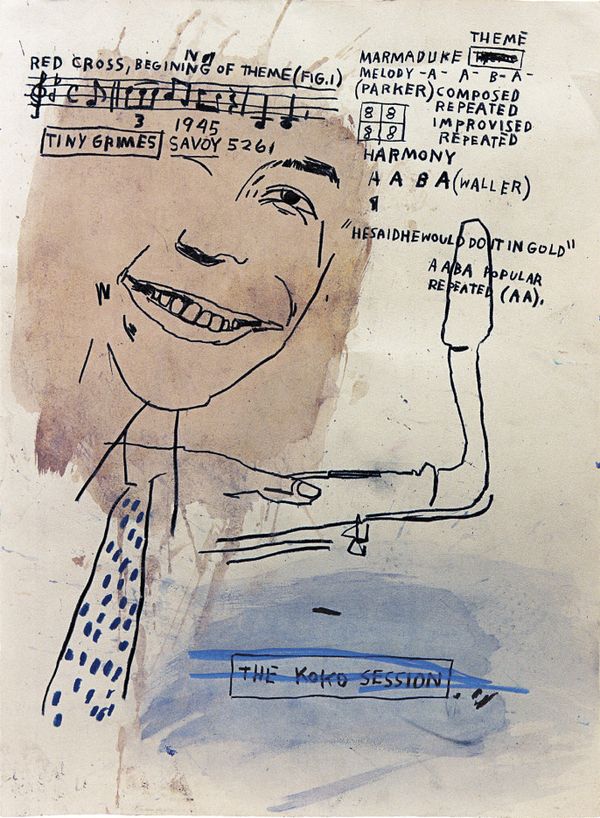 RED CROSS, BEGINING OF THEME (FIG.1)
N
3
1945
TINY GRIMES
SAVOY 5261
THEME
MARMADUKE
MELODY -A- A- B- A-
(PARKER) COMPOSED
REPEATED
8 8
IMPROVISED
8 8
REPEATED
HARMONY
A A B A (WALLER)
"HESAIDHEWOULDDOITINGOLD"
AABA POPULAR
REPEATED (AA).
THE KOKO SESSION